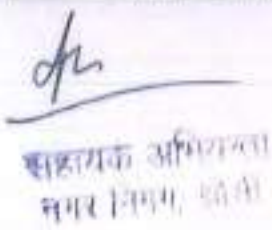 सहायक अभियन्ता
नगर निगम,